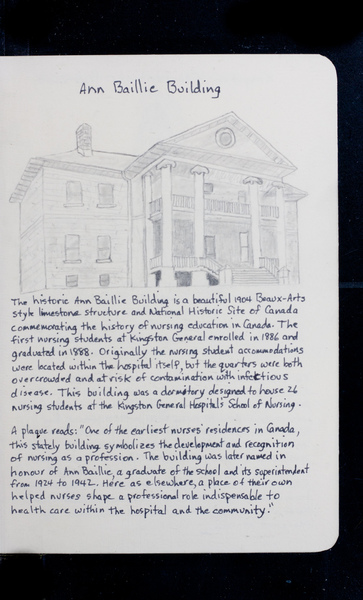 Ann Baillie Building
The historic Ann Baillie Building is a beautiful 1904 Beaux-Arts
style limestone structure and National Historic Site of Canada
commemorating the history of nursing education in Canada. The
first nursing students at Kingston General enrolled in 1886 and
graduated in 1888. Originally the nursing student accommodations
were located within the hospital itself, but the quarters were both
overcrowded and at risk of contamination with infectious
disease. This building was a dormetory designed to house 26
nursing students at the Kingston General Hospital's School of Nursing.
A plaque reads: "One of the earliest nurses' residences in Canada,
this stately building symbolizes the development and recognition
of nursing as a profession. The building was later named in
honour of Ann Baillie, a graduate of the school and its superintendent
from 1924 to 1942. Here as elsewhere, a place of their own
helped nurses shape a professional role indispensable to
health care within the hospital and the community."